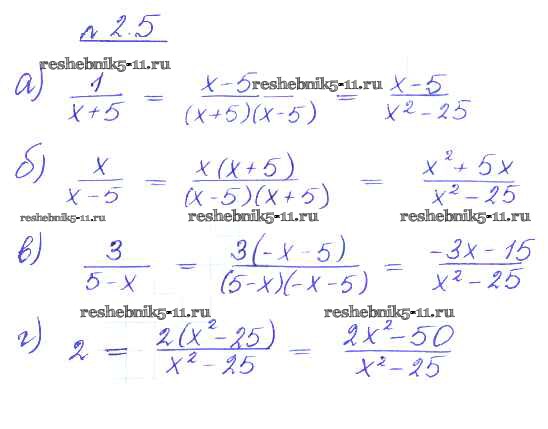 № 2.5
reshebnik5-11.ru
а) 1/(x+5) = (x-5)/((x+5)(x-5)) = (x-5)/(x²-25)
reshebnik5-11.ru
б) x/(x-5) = x(x+5)/((x-5)(x+5)) = (x²+5x)/(x²-25)
reshebnik5-11.ru reshebnik5-11.ru reshebnik5-11.ru
в) 3/(5-x) = 3(-x-5)/((5-x)(-x-5)) = (-3x-15)/(x²-25)
reshebnik5-11.ru reshebnik5-11.ru
г) 2 = 2(x²-25)/(x²-25) = (2x²-50)/(x²-25)